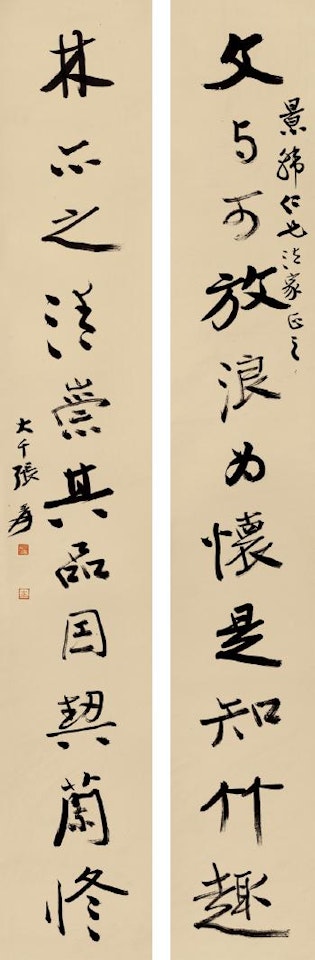 景韓仁兄法家正之
文与可放浪為懷是知竹趣
林亦之清崇其品因契蘭修
大千張爰